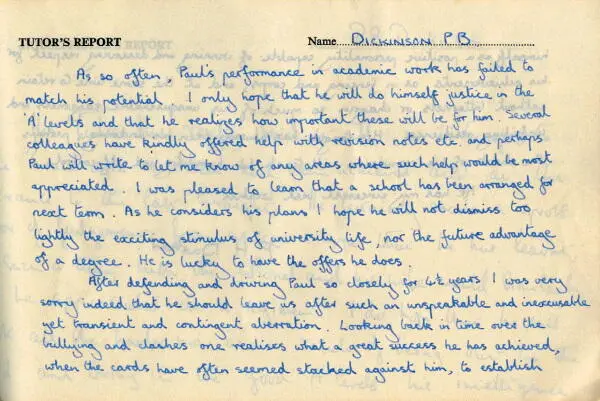 TUTOR'S REPORT Name DICKINSON P B
As so often, Paul's performance in academic work has failed to
match his potential. I only hope that he will do himself justice in the
'A' levels and that he realizes how important these will be for him. Several
colleagues have kindly offered help with revision notes etc. and perhaps
Paul will write to let me know of any areas where such help would be most
appreciated. I was pleased to learn that a school has been arranged for
next term. As he considers his plans I hope he will not dismiss too
lightly the exciting stimulus of university life, nor the future advantage
of a degree. He is lucky to have the offers he does.
After defending and driving Paul so closely for 4½ years I was very
sorry indeed that he should leave us after such an unspeakable and inexcusable
yet transient and contingent aberration. Looking back in time over the
bullying and clashes one realises what a great success he has achieved,
when the cards have often seemed stacked against him, to establish